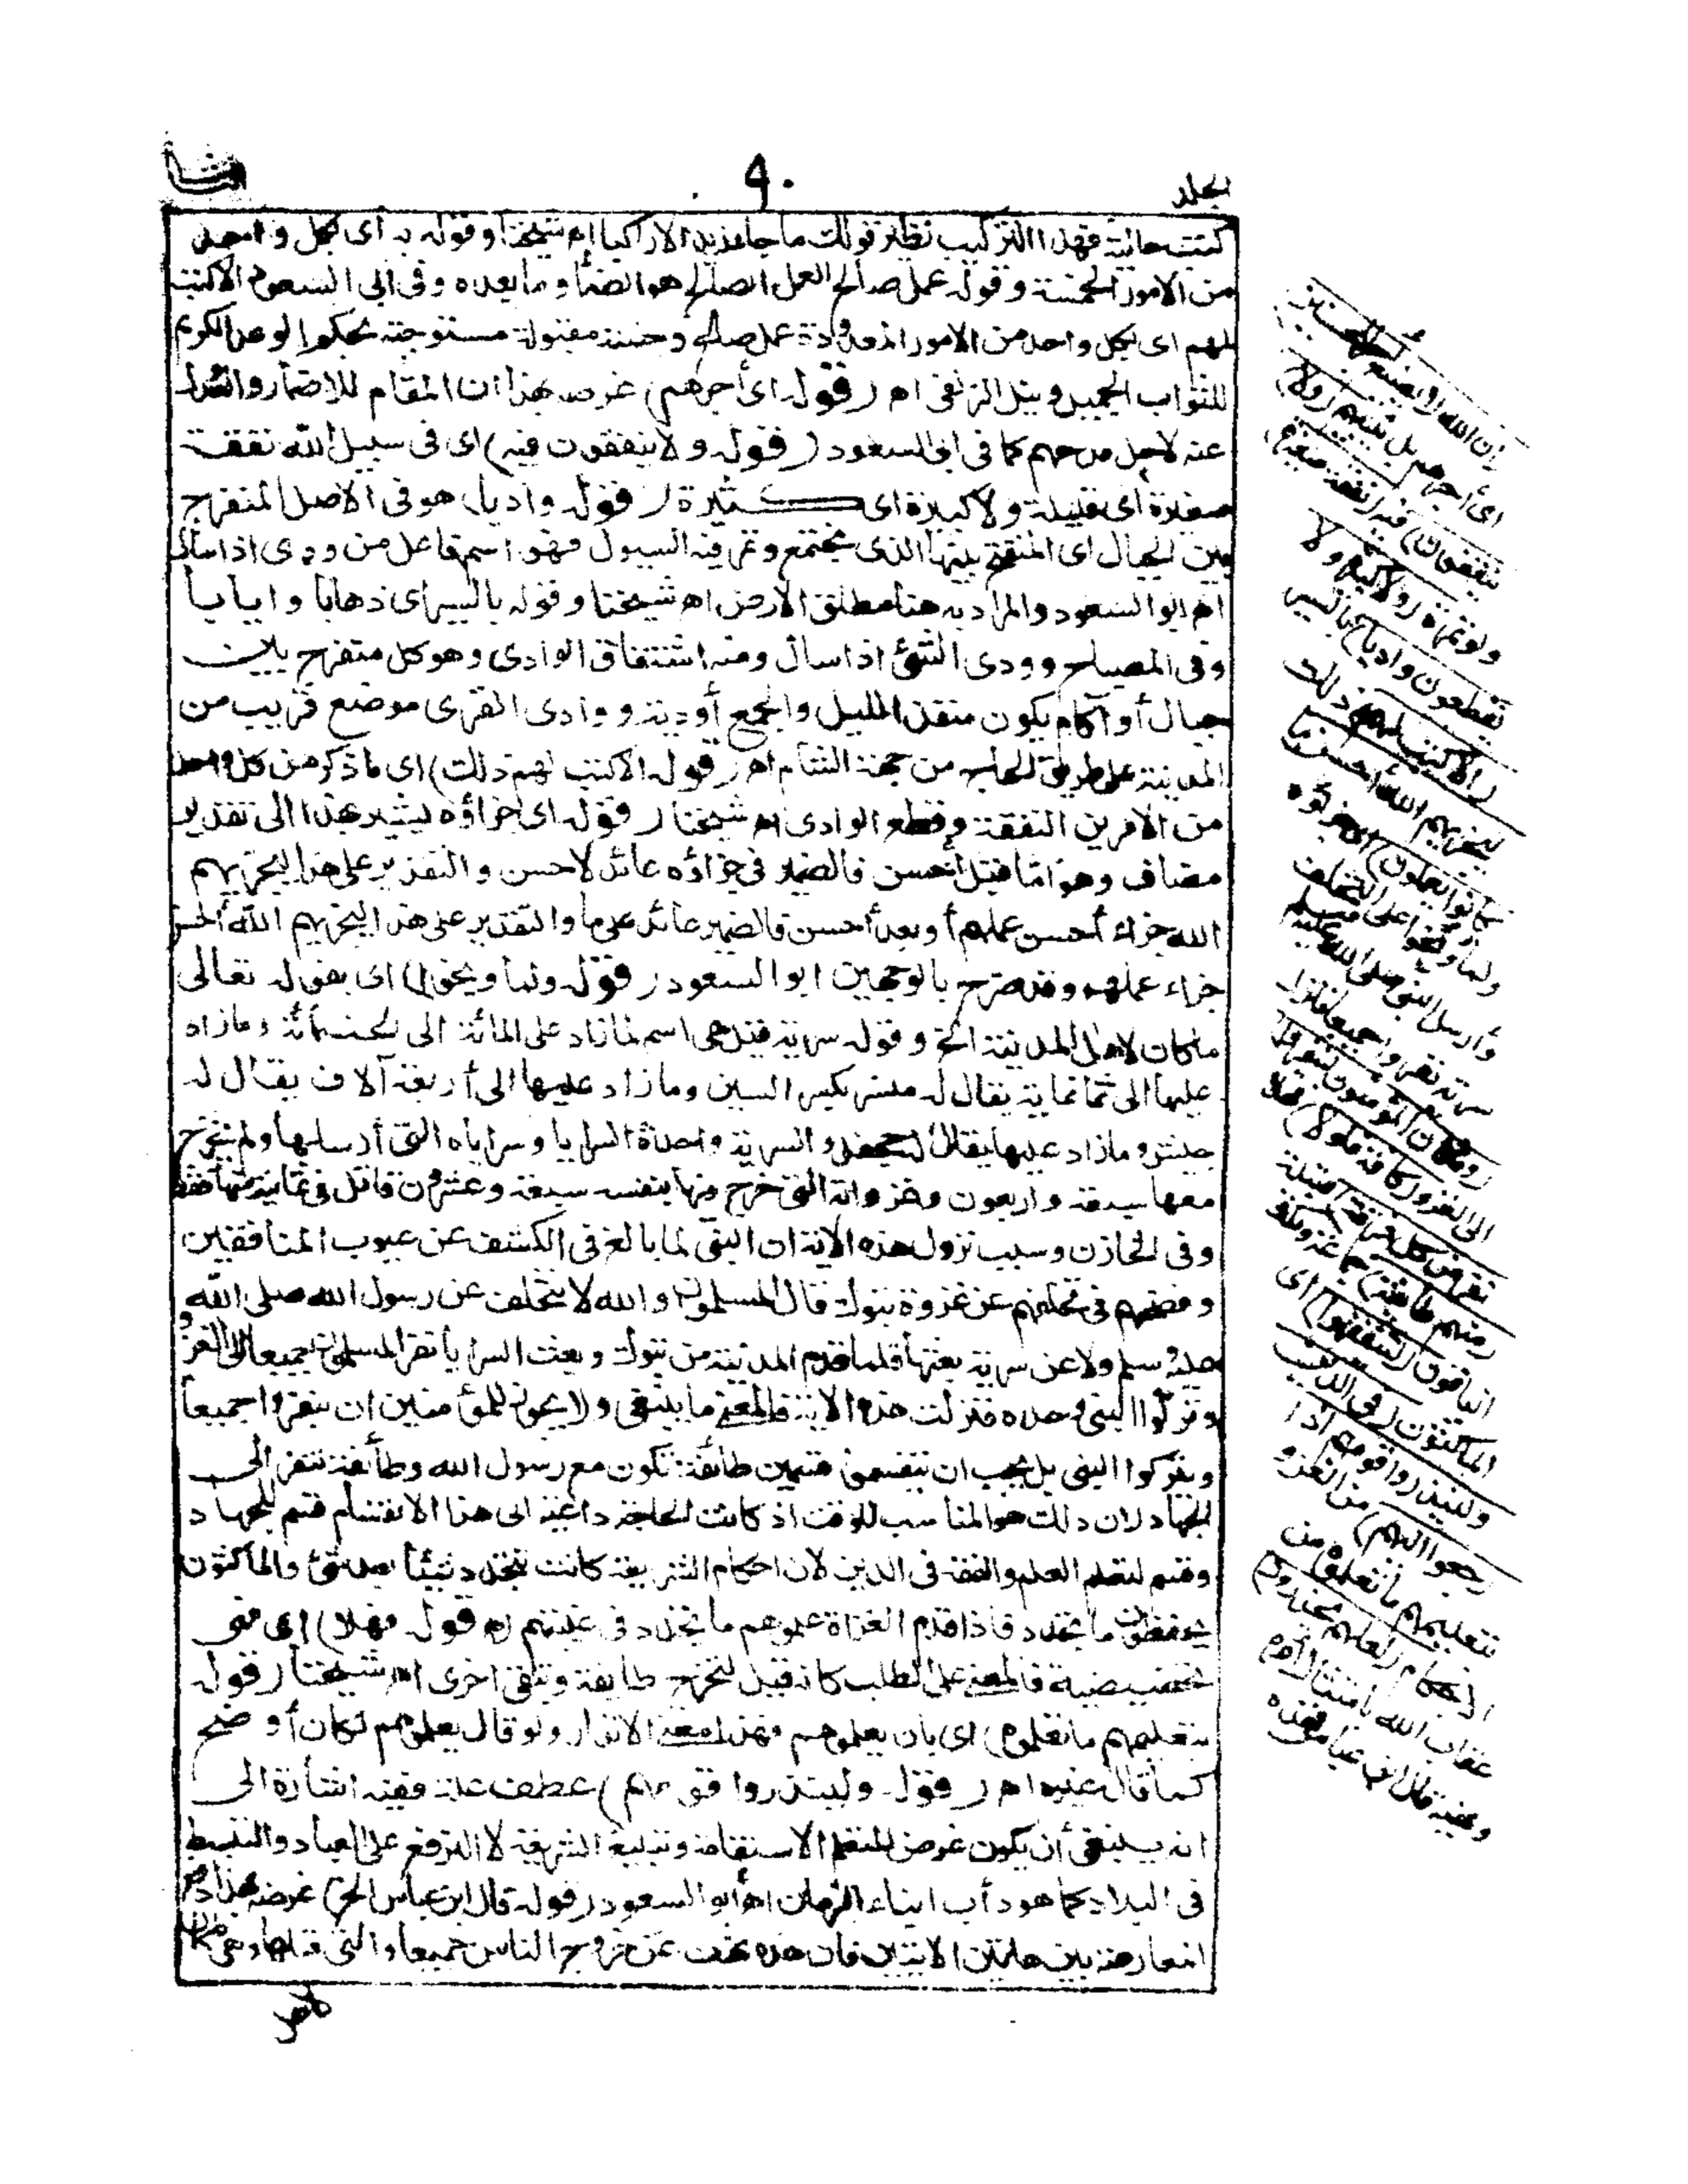 الجلد
٩٠
الثا
كتبت حالية فهذا التركيب نظير قولك ما جاء زيد الا راكبا اه شيخنا وقوله به اى بكل واحد
من الامور الخمسة وقوله عمل صالح العمل الصالح هو الضما وما بعده وفى ابى السعود الا كتب
لهم اى بكل واحد من الامور المعدودة عمل صالح وحسنة مقبولة مستوجبة بحكم الوعد الكريم
للثواب الجميل ونيل الزلفى اه (قوله اى أجرهم) غرضه بهذا ان المقام للاضمار والعدل
عنه لاجل مدحهم كما فى ابى السعود (قوله ولا ينفقون فيه) اى فى سبيل الله نفقة
صغيرة اى قليلة ولا كبيرة اى كثيرة (قوله واديا) هو فى الاصل المنفرج
بين الجبال اى المنفتح بينها الذى يجتمع وتمر فيه السيول فهو اسم فاعل من ودى اذا سال
اه ابو السعود والمراد به هنا مطلق الارض اه شيخنا وقوله بالسير اى ذهابا وايابا
وفى المصباح وودى الشئ اذا سال ومنه اشتقاق الوادى وهو كل منفرج بين
جبال أو آكام يكون منفذا للسيل والجمع أودية ووادى القرى موضع قريب من
المدينة على طريق الحاج من جهة الشام اه (قوله الا كتب لهم ذلك) اى ما ذكر من كل واحد
من الامرين النفقة وقطع الوادى اه شيخنا (قوله اى جزاؤه يشير بهذا الى تقدير
مضاف وهو اما قبل أحسن فالضمير فى جزاؤه عائد لاحسن والتقدير على هذا ليجزيهم
الله جزاء أحسن عملهم أو بعد أحسن فالضمير عائد على ما والتقدير على هذا ليجزيهم الله أحسن
جزاء عملهم وقد صرح بالوجهين ابو السعود (قوله ولما وبخوا) اى بقوله تعالى
ما كان لاهل المدينة الخ وقوله سرية قيل هى اسم لما زاد على المائة الى الخمسمائة وما زاد
عليها الى ثمانمائة يقال له منسر بكسر السين وما زاد عليها الى أربعة آلاف يقال له
جيش وما زاد عليها يقال له جحفل والسرية واحدة السرايا وسراياه التى أرسلها ولم يخرج
معها سبعة وأربعون وغزواته التى خرج فيها بنفسه سبعة وعشرون قاتل فى ثمانية منها فقط
وفى الخازن وسبب نزول هذه الآية ان النبى لما بالغ فى الكشف عن عيوب المنافقين
وفضحهم فى تخلفهم عن غزوة تبوك قال المسلمون والله لا نتخلف عن رسول الله صلى الله
عليه وسلم ولا عن سرية بعثها فلما قدم المدينة من تبوك وبعث السرايا نفر المسلمون جميعا الى الغزو
وتركوا النبى وحده فنزلت هذه الاية فالمعنى ما ينبغى ولا يجوز للمؤمنين ان ينفروا جميعا
ويتركوا النبى بل يجب ان ينقسموا قسمين طائفة تكون مع رسول الله وطائفة تنفر الى
الجهاد لان ذلك هو المناسب للوقت اذ كانت الحاجة داعية الى هذا الانقسام قسم للجهاد
وقسم لتعلم العلم والفقه فى الدين لان احكام الشريعة كانت تتجدد شيئا بعد شئ والماكثون
يحفظون ما تجدد فاذا قدم الغزاة علموهم ما تجدد فى غيبتهم اه (قوله فهلا) اى فهى
تحضيضية فالمعنى على الطلب كانه قيل لتخرج طائفة وتبقى اخرى اه شيخنا (قوله
بتعليمهم ما تعلموه) اى بان يعلموهم فهذا معنى الانذار ولو قال يعلموهم لكان أوضح
كما قال غيره اه (قوله ولينذروا قومهم) عطف علة ففيه اشارة الى
انه ينبغى أن يكون غرض المتعلم الاستقامة وتبليغ الشريعة لا الترفع على العباد والتبسط
فى البلاد كما هو دأب ابناء الزمان اه أبو السعود (قوله قال ابن عباس الخ) غرضه بهذا دفع
التعارض بين هاتين الآيتين فان هذه نهت عن خروج الناس جميعا والتى قبلها وهى ما كان
ان الله لا يضيع أجر المحسنين
اى أجرهم بل يثيبهم (ولا
ينفقون) فيه (نفقة صغيرة)
ولو تمرة (ولا كبيرة ولا
يقطعون واديا) بالسير
(الا كتب لهم) ذلك
ليجزيهم الله أحسن ما
كانوا يعملون) اى جزاؤه
ولما وبخوا على التخلف
وأرسل النبى صلى الله عليه وسلم
سرية نفروا جميعا فنزل
(وما كان المؤمنون لينفروا)
الى الغزو (كافة فلولا) فهلا
نفر من كل فرقة) قبيلة
(منهم طائفة) جماعة ومكث
الباقون (ليتفقهوا) اى
الماكثون (فى الدين
ولينذروا قومهم اذا
رجعوا اليهم) من الغزو
بتعليمهم ما تعلموه من
الاحكام (لعلهم يحذرون)
عقاب الله بامتثال أمره
ونهيه قال ابن عباس فهذه